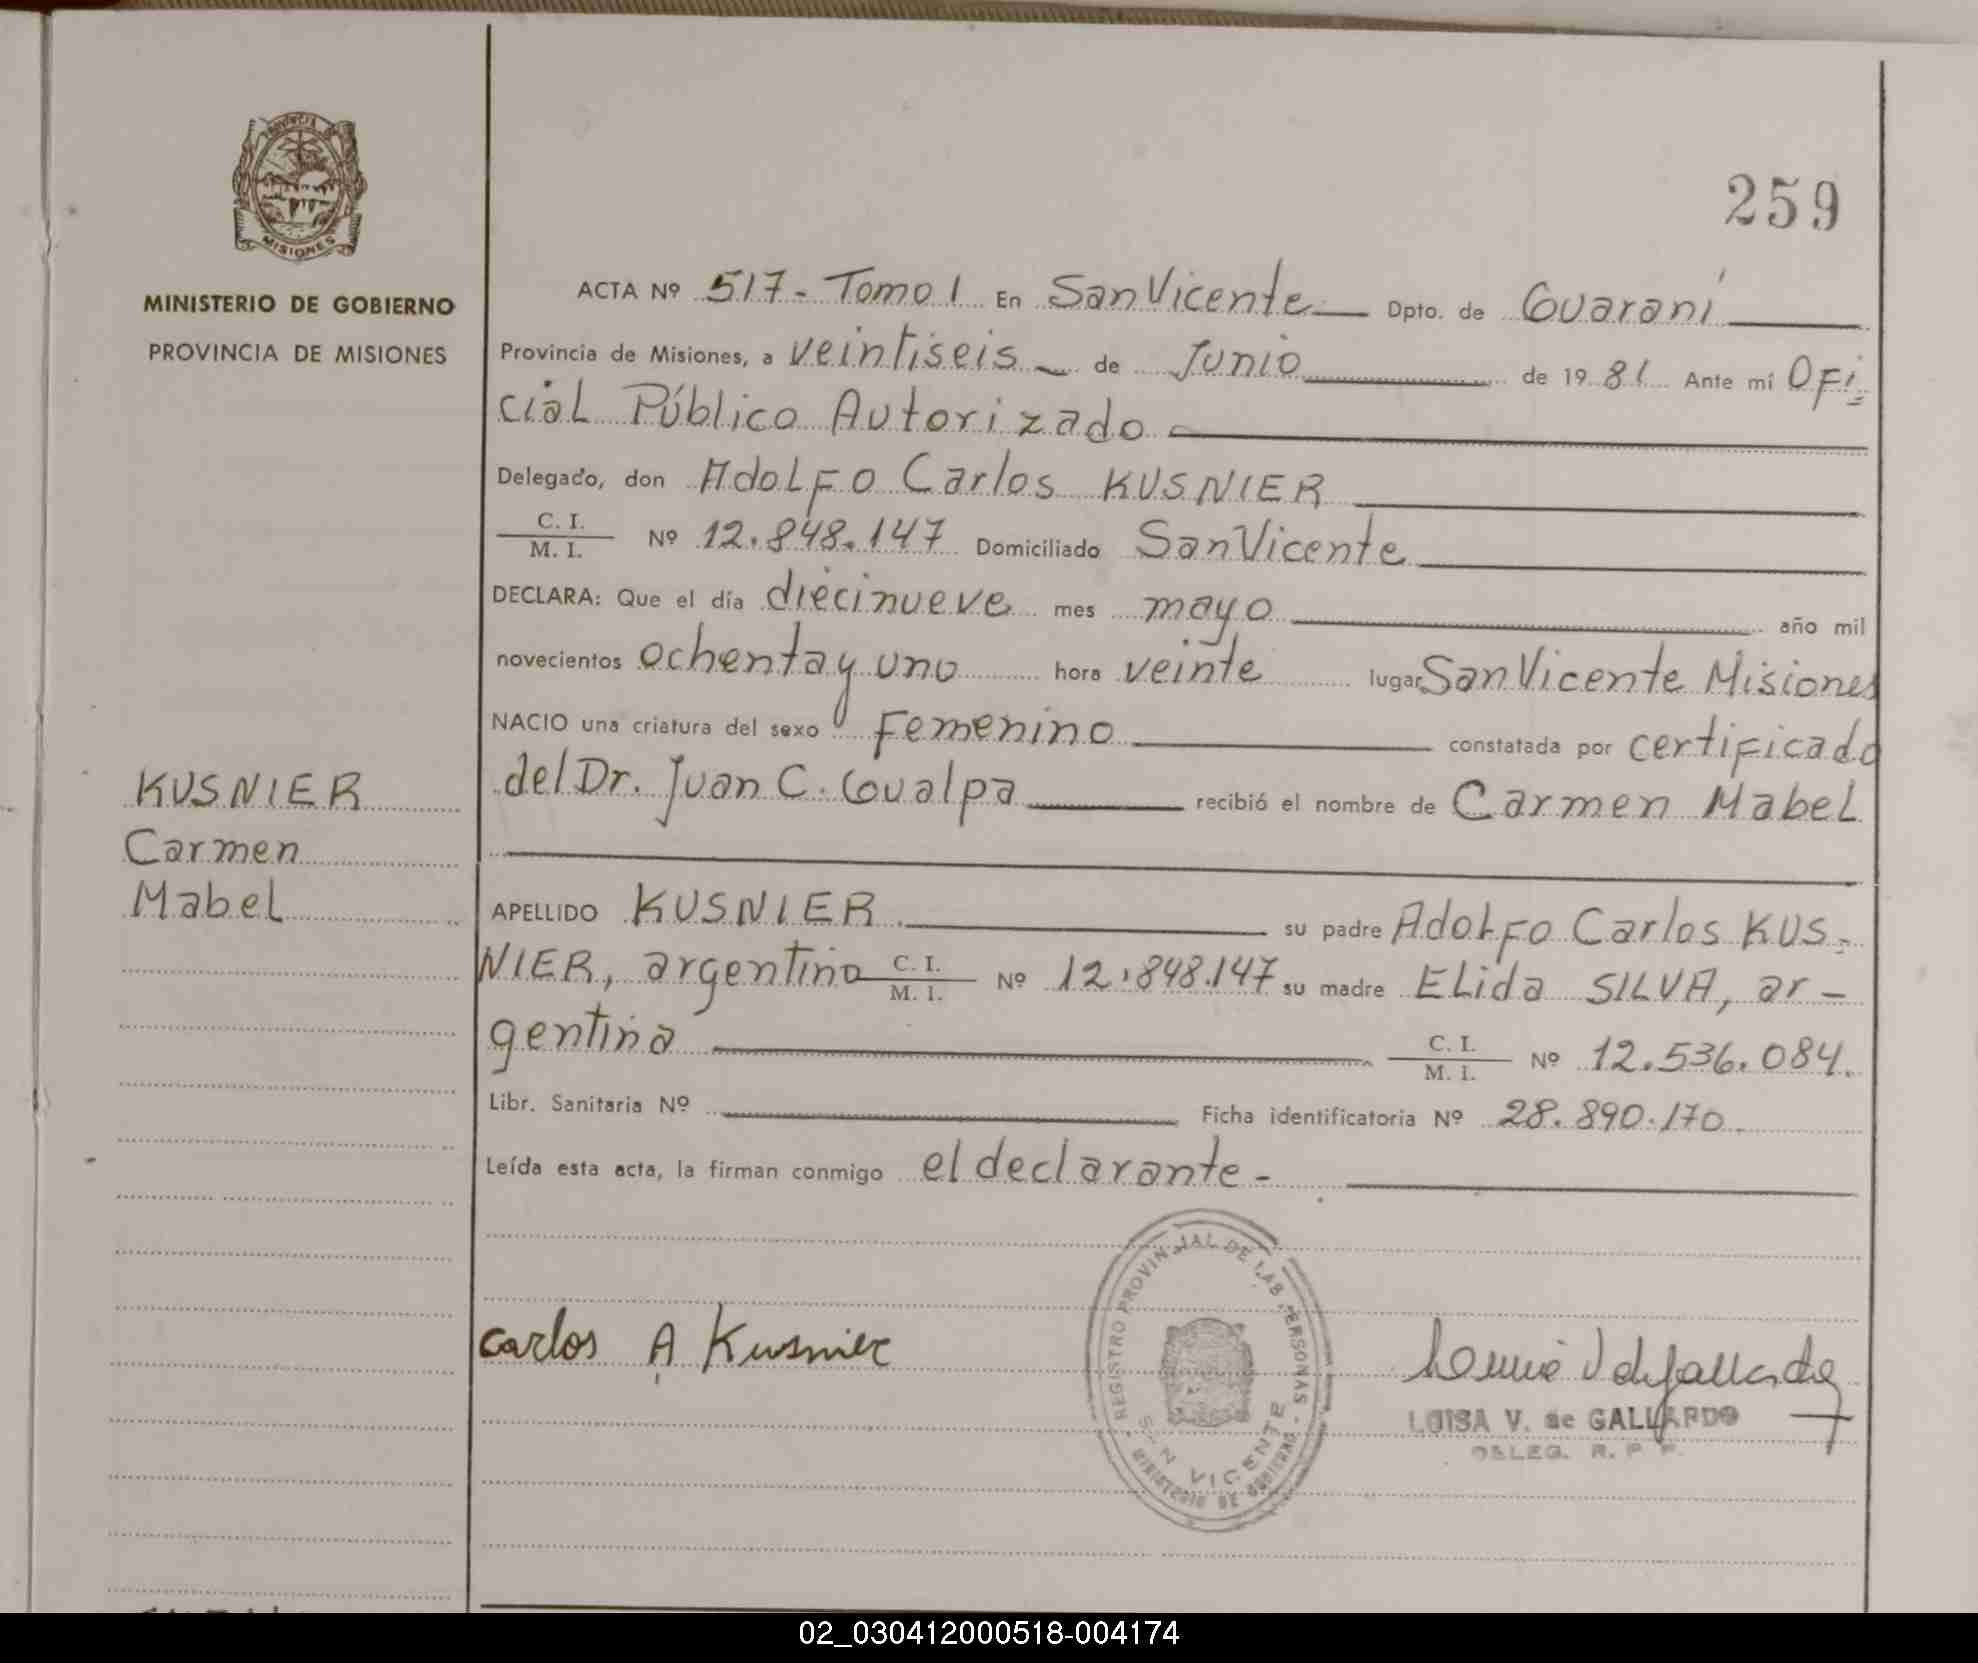 PROVINCIA
MISIONES
MINISTERIO DE GOBIERNO
PROVINCIA DE MISIONES
259
ACTA Nº 517- Tomo 1 En San Vicente Dpto. de Guaraní
Provincia de Misiones, a veintiseis de Junio de 1981 Ante mí Ofi
cial Público Autorizado
Delegado, don Adolfo Carlos KUSNIER
C. I.
M. I. Nº 12.848.147 Domiciliado San Vicente
DECLARA: Que el día diecinueve mes mayo año mil
novecientos ochenta y uno hora veinte lugar San Vicente Misiones
NACIO una criatura del sexo Femenino constatada por certificado
del Dr. Juan C. Gualpa recibió el nombre de Carmen Mabel
KUSNIER
Carmen
Mabel
APELLIDO KUSNIER su padre Adolfo Carlos KUS-
NIER, argentino C. I. M. I. Nº 12.848.147 su madre Elida SILVA, ar-
gentina C. I. M. I. Nº 12.536.084.
Libr. Sanitaria Nº Ficha identificatoria Nº 28.890.170.
Leída esta acta, la firman conmigo el declarante-
Carlos A Kusnier
REGISTRO PROVINCIAL DE LAS PERSONAS
SAN VICENTE
MINISTERIO DE GOBIERNO
LUISA V. de GALLARDO
DELEG. R. P. P.
02_030412000518-004174